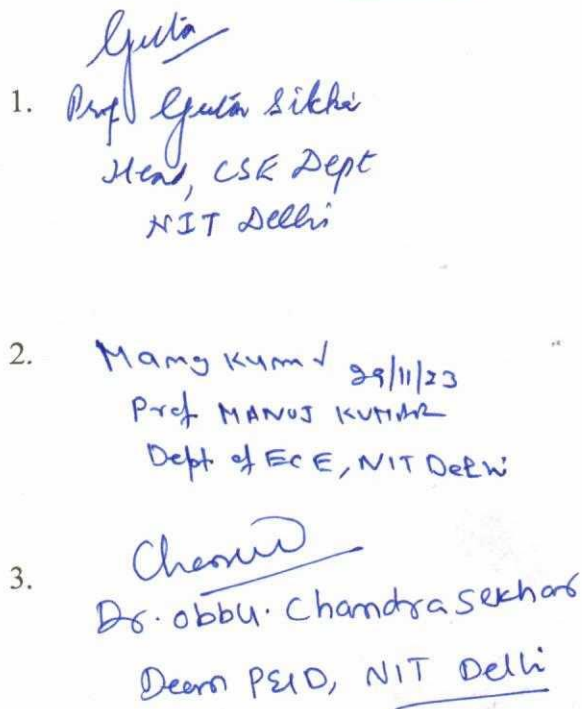 Geeta
1. Prof Geeta Sikka
Head, CSE Dept
NIT Delhi
2. Manoj Kumar 29/11/23
Prof MANOJ KUMAR
Dept of ECE, NIT Delhi
3.
Dr. Obbu. Chandra Sekhar
Dean P&D, NIT Delhi